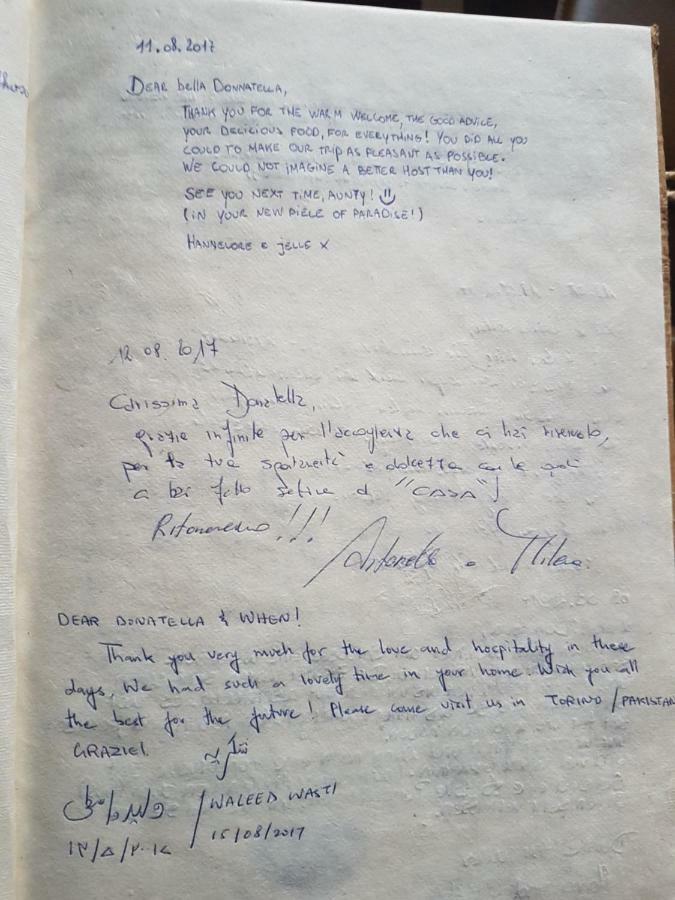 11.08.2017
DEAR bella DONNATELLA,
THANK YOU FOR THE WARM WELCOME, THE GOOD ADVICE,
YOUR DELICIOUS FOOD, FOR EVERYTHING! YOU DID ALL YOU
COULD TO MAKE OUR TRIP AS PLEASANT AS POSSIBLE.
WE COULD NOT IMAGINE A BETTER HOST THAN YOU!
SEE YOU NEXT TIME, AUNTY!
(IN YOUR NEW PIECE OF PARADISE!)
HANNELORE & JELLE X
12.08.2017
Carissima Donatella,
grazie infinite per l'accoglienza che ci hai riservato,
per la tua spontaneità e dolcezza con le quali
ci hai fatto sentire a "CASA"!
Ritorneremo!!!
Antonello e Milena
DEAR DONATELLA & WHEN!
Thank you very much for the love and hospitality in these
days, We had such a lovely time in your home. Wish you all
the best for the future! Please come visit us in TORINO/PAKISTAN
GRAZIE! شکریہ
ولید واسطی / WALEED WASTI
15/08/2017